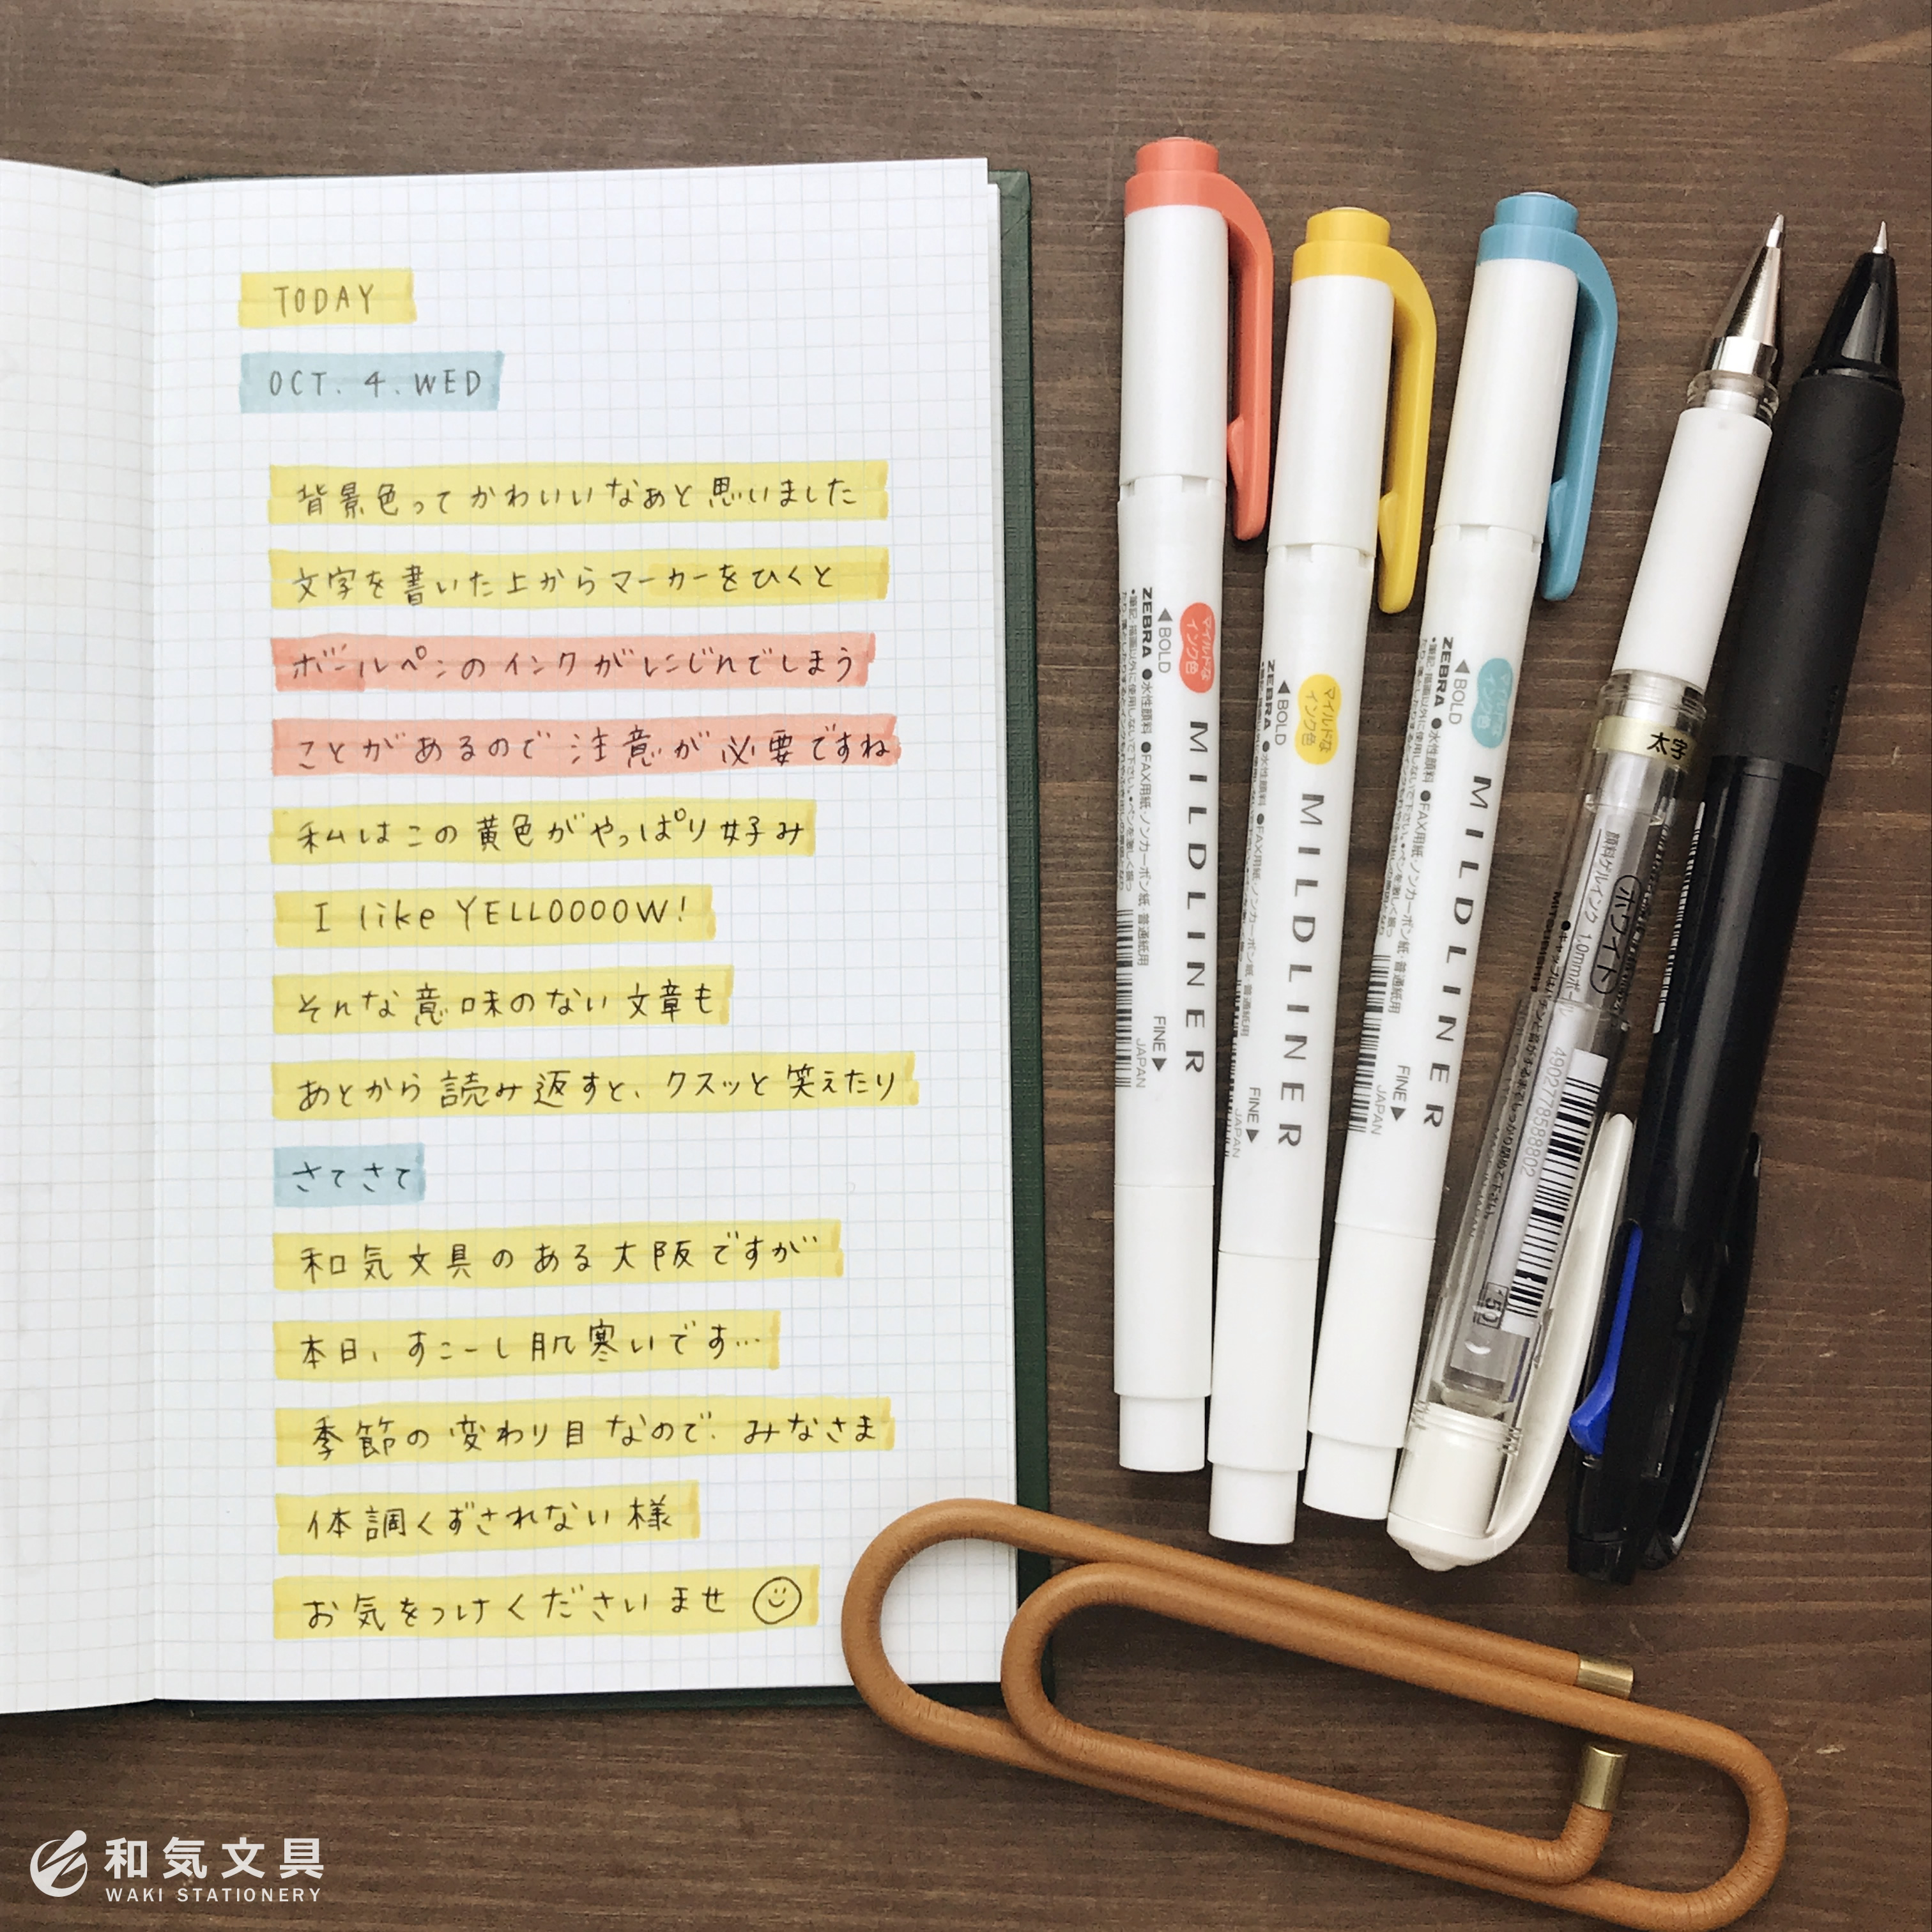 TODAY
OCT. 4. WED
背景色ってかわいいなぁと思いました
文字を書いた上からマーカーをひくと
ボールペンのインクがにじんでしまう
ことがあるので注意が必要ですね
私はこの黄色がやっぱり好み
I like YELLOOOOW!
そんな意味のない文章も
あとから読み返すと、クスッと笑えたり
さてさて
和気文具のある大阪ですが
本日、すこーし肌寒いです…
季節の変わり目なので、みなさま
体調くずされない様
お気をつけくださいませ
マイルドな
インク色
MILDLINER
◀BOLD
FINE▶
ZEBRA ●水性顔料 ●FAX用紙・ノンカーボン紙・普通紙用
JAPAN
マイルドな
インク色
MILDLINER
◀BOLD
FINE▶
ZEBRA ●水性顔料 ●FAX用紙・ノンカーボン紙・普通紙用
JAPAN
マイルドな
インク色
MILDLINER
◀BOLD
FINE▶
ZEBRA ●水性顔料 ●FAX用紙・ノンカーボン紙・普通紙用
JAPAN
太字
ホワイト
顔料ゲルインク 1.0mmボール
4902778588802
150
和気文具
WAKI STATIONERY